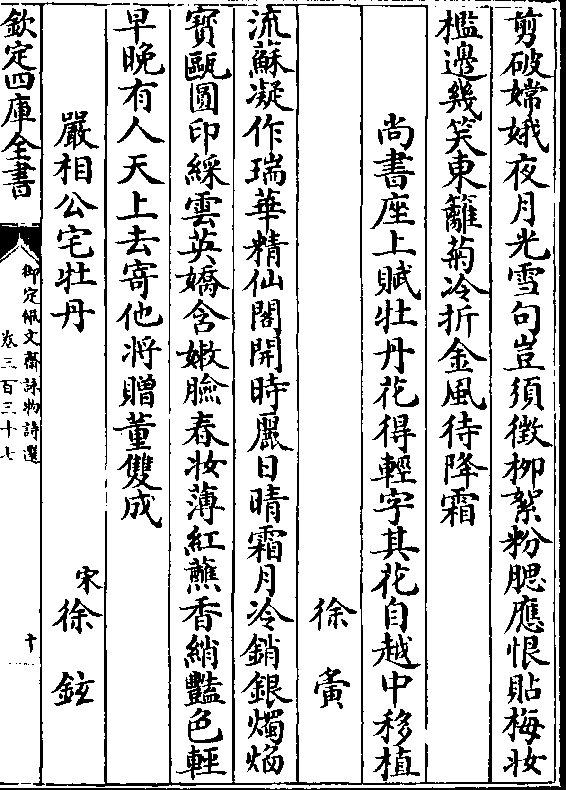 剪破嫦娥夜月光雪句豈須徴栁絮粉腮應恨貼梅妆
檻邊幾笑東籬菊冷折金風待降霜
尚書座上賦牡丹花得輕字其花自越中移植
徐夤
流蘇凝作瑞華精仙閣開時麗日晴霜月冷銷銀燭焰
寳甌圓印綵雲英嬌含嫩臉春妆薄紅蘸香綃豔色輕
早晩有人天上去寄他将贈董雙成
嚴相公宅牡丹
宋徐鉉
欽定四庫全書
御定佩文齋詠物詩選
卷三百三十七
十